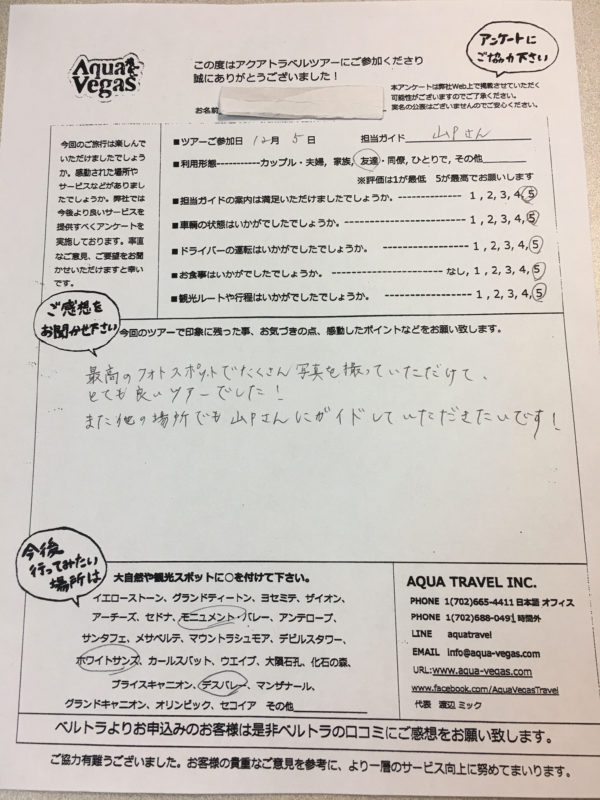 Aqua Vegas
この度はアクアトラベルツアーにご参加くださり
誠にありがとうございました！
アンケートに
ご協力下さい
本アンケートは弊社Web上で掲載させていただく
可能性がございますのでご了承ください。
実名の公表はございませんのでご安心ください。
お名前
今回のご旅行は楽しんで
いただけましたでしょう
か。感動された場所や
サービスなどがありまし
たでしょうか。弊社では
今後より良いサービスを
提供すべくアンケートを
実施しております。率直
なご意見、ご要望をお聞
かせいただけますと幸い
です。
■ツアーご参加日 12月 5日 担当ガイド 山Pさん
■利用形態-----------カップル・夫婦, 家族, 友達・同僚, ひとりで, その他
※評価は1が最低 5が最高でお願いします
■担当ガイドの案内は満足いただけましたでしょうか。--------------- 1 , 2, 3, 4, 5
■車輌の状態はいかがでしたでしょうか。-------------------- 1 , 2, 3, 4, 5
■ドライバーの運転はいかがでしたでしょうか。 -------------------- 1 , 2, 3, 4, 5
■お食事はいかがでしたでしょうか。 -------------------- なし, 1, 2, 3, 4, 5
■観光ルートや行程はいかがでしたでしょうか。-------------------- 1, 2, 3, 4, 5
ご感想を
お聞かせ下さい
今回のツアーで印象に残った事、お気づきの点、感動したポイントなどをお願い致します。
最高のフォトスポットでたくさん写真を撮っていただけて、
とても良いツアーでした！
また他の場所でも山Pさんにガイドしていただきたいです！
今後
行ってみたい
場所は
大自然や観光スポットに○を付けて下さい。
イエローストーン、グランドティートン、ヨセミテ、ザイオン、
アーチーズ、セドナ、モニュメント・バレー、アンテロープ、
サンタフェ、メサベルデ、マウントラシュモア、デビルスタワー、
ホワイトサンズ、カールスバット、ウエイブ、大隕石孔、化石の森、
ブライスキャニオン、デスバレー、マンザナール、
グランドキャニオン、オリンピック、セコイア その他
AQUA TRAVEL INC.
PHONE 1(702)665-4411 日本語 オフィス
PHONE 1(702)688-0491 時間外
LINE aquatravel
EMAIL info@aqua-vegas.com
URL:www.aqua-vegas.com
www.facebook.com/AquaVegasTravel
代表 渡辺 ミック
ベルトラよりお申込みのお客様は是非ベルトラの口コミにご感想をお願い致します。
ご協力有難うございました。お客様の貴重なご意見を参考に、より一層のサービス向上に努めてまいります。